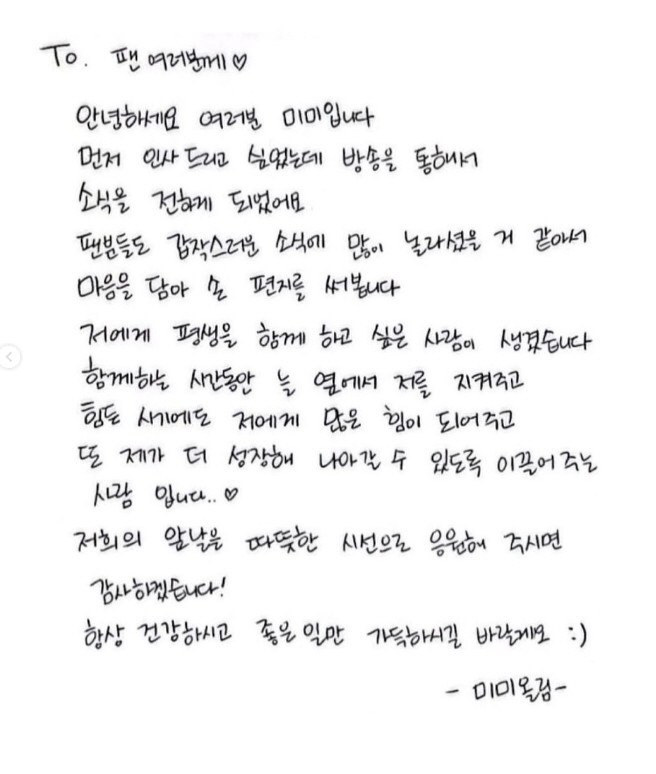 To. 팬 여러분께♡
안녕하세요 여러분 미미입니다
먼저 인사 드리고 싶었는데 방송을 통해서
소식을 전하게 되었어요
팬분들도 갑작스러운 소식에 많이 놀라셨을 거 같아서
마음을 담아 손 편지를 써봅니다
저에게 평생을 함께 하고 싶은 사람이 생겼습니다
함께하는 시간동안 늘 옆에서 저를 지켜주고
힘든 시기에도 저에게 많은 힘이 되어주고
또 제가 더 성장해 나아갈 수 있도록 이끌어 주는
사람 입니다..♡
저희의 앞날을 따뜻한 시선으로 응원해 주시면
감사하겠습니다!
항상 건강하시고 좋은 일만 가득하시길 바랄게요 :)
- 미미올림-